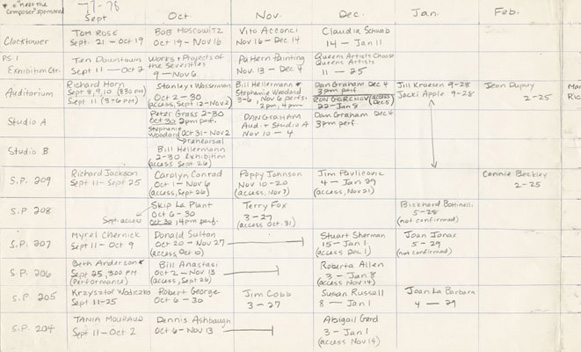 77-78
Sept. Oct. Nov. Dec. Jan. Feb.
Clocktower
Tom Rose
Sept. 21 - Oct 19
Bob Moscowitz
Oct 19 - Nov 16
Vito Acconci
Nov 16 - Dec 14
Claudia Schwab
14 - Jan 11
P.S. 1
Exhibition Ctr.
Ten Downtown
Sept 11 - Oct 2
Works + Projects of
the Seventies
9 - Nov 6
Pattern Painting
Nov 13 - Dec 4
Queens Artists Choose
Queens Artists
11 - 25
Auditorium
Richard Horn
Sept 8,9,10 (8:30 PM)
Sept 11 (3-6 PM)
Stanley Wiseman
Oct 2 - 30
(access, Sept 12 - Nov 2)
Bill Hellermann
Stephanie Woodard
3-6, Nov perfs.
2pm, 4pm
Dan Graham Dec 4
3pm perf
Ron Gorchov
22 - Jan 8
Jill Kroesen 9-28
Jacki Apple 9-28
Jean Dupuy
2-25
Studio A
Peter Grass 2-30
Oct 30 2pm perf.
Stephanie
Woodard Oct 31 - Nov 2
rehearsal
Dan Graham
Aud + Studio A
Nov 10 - 4
Dan Graham Dec 4
3pm perf.
Studio B
Bill Hellermann
2-30 Exhibition
(access, Sept 26)
S.P. 209
Richard Jackson
Sept 11 - Sept 25
Carolyn Conrad
Oct 1 - Nov 6
(access, Sept 26)
Poppy Johnson
Nov 10-20
(access, Nov 7)
Jim Pavlicovic
4 - Jan 29
(access, Nov 21)
Connie Beckley
2-25
S.P. 208
Sept. access
Skip La Plante
Oct 6-30
Oct 30, 4pm perf.
Terry Fox
3-27
(access Oct. 31)
5-28
(not confirmed)
S.P. 207
Myrel Chernick
Sept 11 - Oct 9
Donald Sultan
Oct 20 - Nov 27
(access, Oct 10)
Stuart Sherman
15 - Jan 1
(access Dec 1)
Joan Jonas
5 - 29
(not confirmed)
S.P. 206
Beth Anderson
Sept 25, 3:00 PM
(Performance)
Bill Anastasi
Oct 2 - Nov 13
(access, Sept 26)
Roberta Allen
3 - Jan 8
(access Nov 14)
S.P. 205
Krzysztof Wodiczko
Sept 11-25
Robert George
Oct 6 - 30
Jim Cobb
3-27
Susan Russell
8 - Jan 1
Joan La Barbara
4 - 29
S.P. 204
Tania Mouraud
Sept 11 - Oct 2
Dennis Ashbaugh
Oct 6 - Nov 13
Abigail Gerd
3 - Jan 1
(access Nov 14)